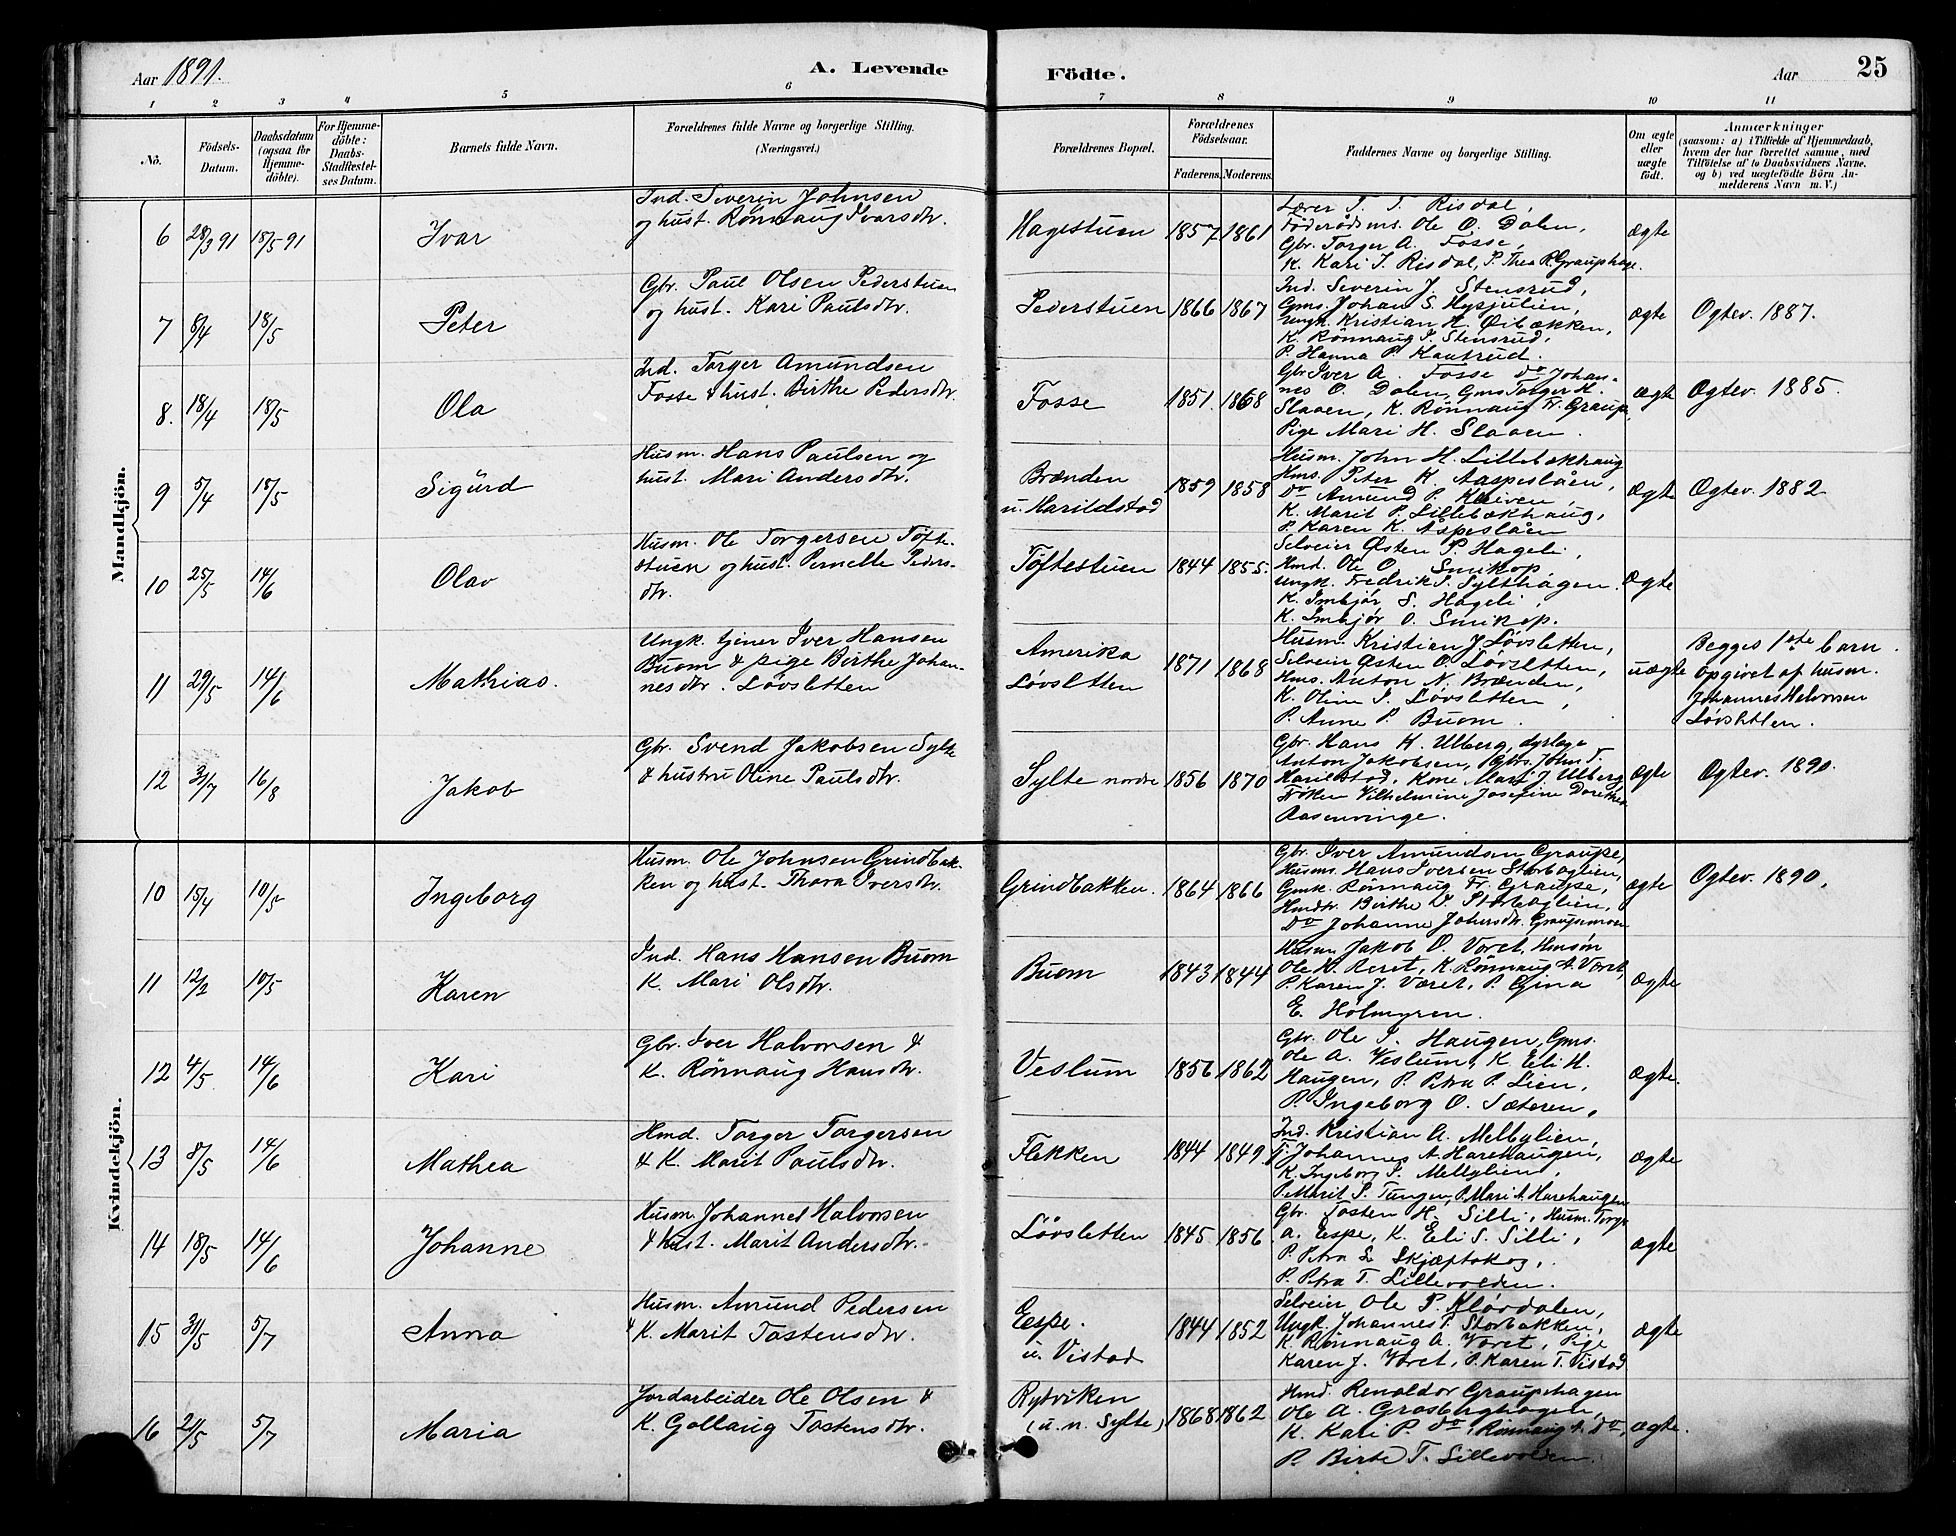 Aar 1891.
A. Levende
Födte.
Aar
25
1 2 3 4 5 6 7 8 9 10 11
Nô.
Födsels-
Datum.
Daabsdatum
(ogsaa for
Hjemme-
döbte).
For Hjemme-
döbte:
Daabs-
Stadfestel-
ses Datum.
Barnets fulde Navn.
Forældrenes fulde Navne og borgerlige Stilling.
(Næringsvei.)
Forældrenes Bopæl.
Forældrenes
Födselsaar.
Faderens. Moderens.
Faddernes Navne og borgerlige Stilling.
Om ægte
eller
uægte
födt.
Anmærkninger
(saasom: a) i Tilfælde af Hjemmedaab,
hvem der har forrettet samme, med
Tilföielse af to Daabsvidners Navne,
og b) ved uægtefödte Börn An-
melderens Navn m. V.)
Mandkjön.
6 28/3 91 18/5 91 Ivar
Ind. Severin Johnsen
og hust. Rønnaug Ivarsdtr.
Hagestuen 1857 1861
Lærer T. T. Risdal,
Föderådsms. Ole O. Dalen,
Gbr. Torger A. Fosse,
K. Kari T. Risdal, P. Thea R. Grauphage.
ægte
7 8/4 18/5 Peter
Gbr. Paul Olsen Pederstuen
og hust. Kari Paulsdtr.
Pederstuen 1866 1867
Ind. Severin J. Stensrud,
Gms. Johan S. Hysjulien,
Ungk. Kristian H. Øibækken,
K. Rønnaug I. Stensrud,
P. Hanna P. Kantrud.
ægte Ogtev. 1887.
8. 18/4 18/5 Ola
Ind. Torger Amundsen
Fosse & hust. Birthe Pedersdtr.
Fosse 1851. 1868
Gbr Iver A. Fosse Do Johan-
nes O. Dalen, Gms Torger H.
Slaaen, K. Rønnaug Fr. Graupe,
Pige Mari H. Slaaen.
ægte Ogtev. 1885.
9 5/4 18/5 Sigurd
Husm. Hans Paulsen og
hust. Mari Andersdtr.
Brænden
u. Harildstad 1859 1858
Husm. John H. Lillebækhaug
Hms. Peter K. Aaspeslåen,
Do Amund P. Kleiven,
K. Marit P. Lillebækhaug,
P. Karen K. Åspeslåen
Ægte Ogtev. 1882.
10 25/5 14/6 Olav
Husm. Ole Torgersen Töfte-
stuen og hust. Pernelle Peders-
dtr.
Töftestuen 1844 1855.
Selveier Østen P. Hageli,
Hmd. Ole O. Smikop,
Ungk. Fredrik S. Sylthagen.
K. Imbjör S. Hageli,
K. Imbjör O. Smikop.
Ægte
11 29/5 14/6 Mathias.
Ungk. tjener Iver Hansen
Buom & pige Birthe Johan-
nesdtr. Lövsletten
Amerika
Lövsletten 1871 1868
Husm. Kristian J. Lövsletten,
Selveier Østen O. Lövsletten,
Hms. Anton N. Brænden,
K. Oline I. Lövsletten,
P. Anne P. Buom.
uægte
Begges 1ste barn.
Opgivet af husm.
Johannes Halvorsen
Lövsletten.
12 31/7 16/8 Jakob
Gbr. Svend Jakobsen Sylte
& hustru Oline Paulsdtr.
Sylte nordre 1856 1870
Gbr. Hans H. Ulberg, dyrlæge
Anton Jakobsen, Gbrs. John T.
Harildstad, Kone Mari J. Ulberg
Fröken Vilhelmine Josefine Dorethea
Rasenvinge.
Ægte Ogtev. 1890.
Kvindekjön.
10 15/4 10/5 Ingeborg
Husm. Ole Johnsen Grindbak-
ken og hust. Thora Iversdtr.
Grindbakken. 1864 1866
Gbr. Iver Amundsen Graupe,
Husms. Hans Iversen Storboglien,
Gmk. Rønnaug Fr. Graupe,
Hmdtr. Birthe D. Storboglien,
Do Johanne Johnsdtr. Graupemoen
ægte Ogtev. 1890.
11 12/2 10/5 Karen
Ind. Hans Hansen Buom
K. Mari Olsdtr.
Buom 1843 1844
Husm Jakob O. Voret, Hmsön
Ole K. Reret, K. Rønnaug A. Voret,
P. Karen J. Været, P. Gina
E. Holmgren.
ægte
12 4/5 14/6 Kari
Gbr. Iver Halvorsen &
K. Rønnaug Hansdtr.
Veslum 1856 1862
Gbr. Ole I. Haugen, Gms.
Ole A. Veslum, K. Eli H.
Haugen, P. Petra P. Lien,
P. Ingeborg O. Sæteren,
Ægte.
13 8/5 14/6 Mathea
Hmd. Torger Torgersen
& K. Marit Paulsdtr.
Flekken 1844 1849
Ind. Kristian A. Melbylien,
T. Johannes A. Harehaugen,
K. Ingeborg I. Melbylien,
P. Marit P. Tungen, P. Mari A. Harehaugen
Ægte
14 18/5 14/6 Johanne
Husm. Johannes Halvorsen
& hust. Marit Andersdtr.
Lövsletten 1845 1856
Gbr. Tosten H. Silli, Husm. Torger
A. Espe, K. Eli S. Silli,
P. Petra L. Skjæptskog,
P. Petra T. Lillevolden.
ægte
15 31/5 5/7 Anna
Husm. Amund Pedersen
& K. Marit Tostensdtr.
Espe.
u. Vistad 1844 1852
Selveier Ole P. Klövdalen,
Ungk. Johannes P. Storbakken,
K. Rønnaug A. Voret, Pige
Karen J. Voret, P. Karen T. Vistad
ægte
16 21/5 5/7 Maria
Jordarbeider Ole Olsen &
K. Gollaug Tostensdtr.
Rytviken
(u. n. Sylte) 1868 1862
Hmd. Renaldor Graupehagen
Ole A. Grosberghagen,
K. Kari P. Do, Rønnaug A. Do,
P. Birte T. Lillevolden.
ægte.